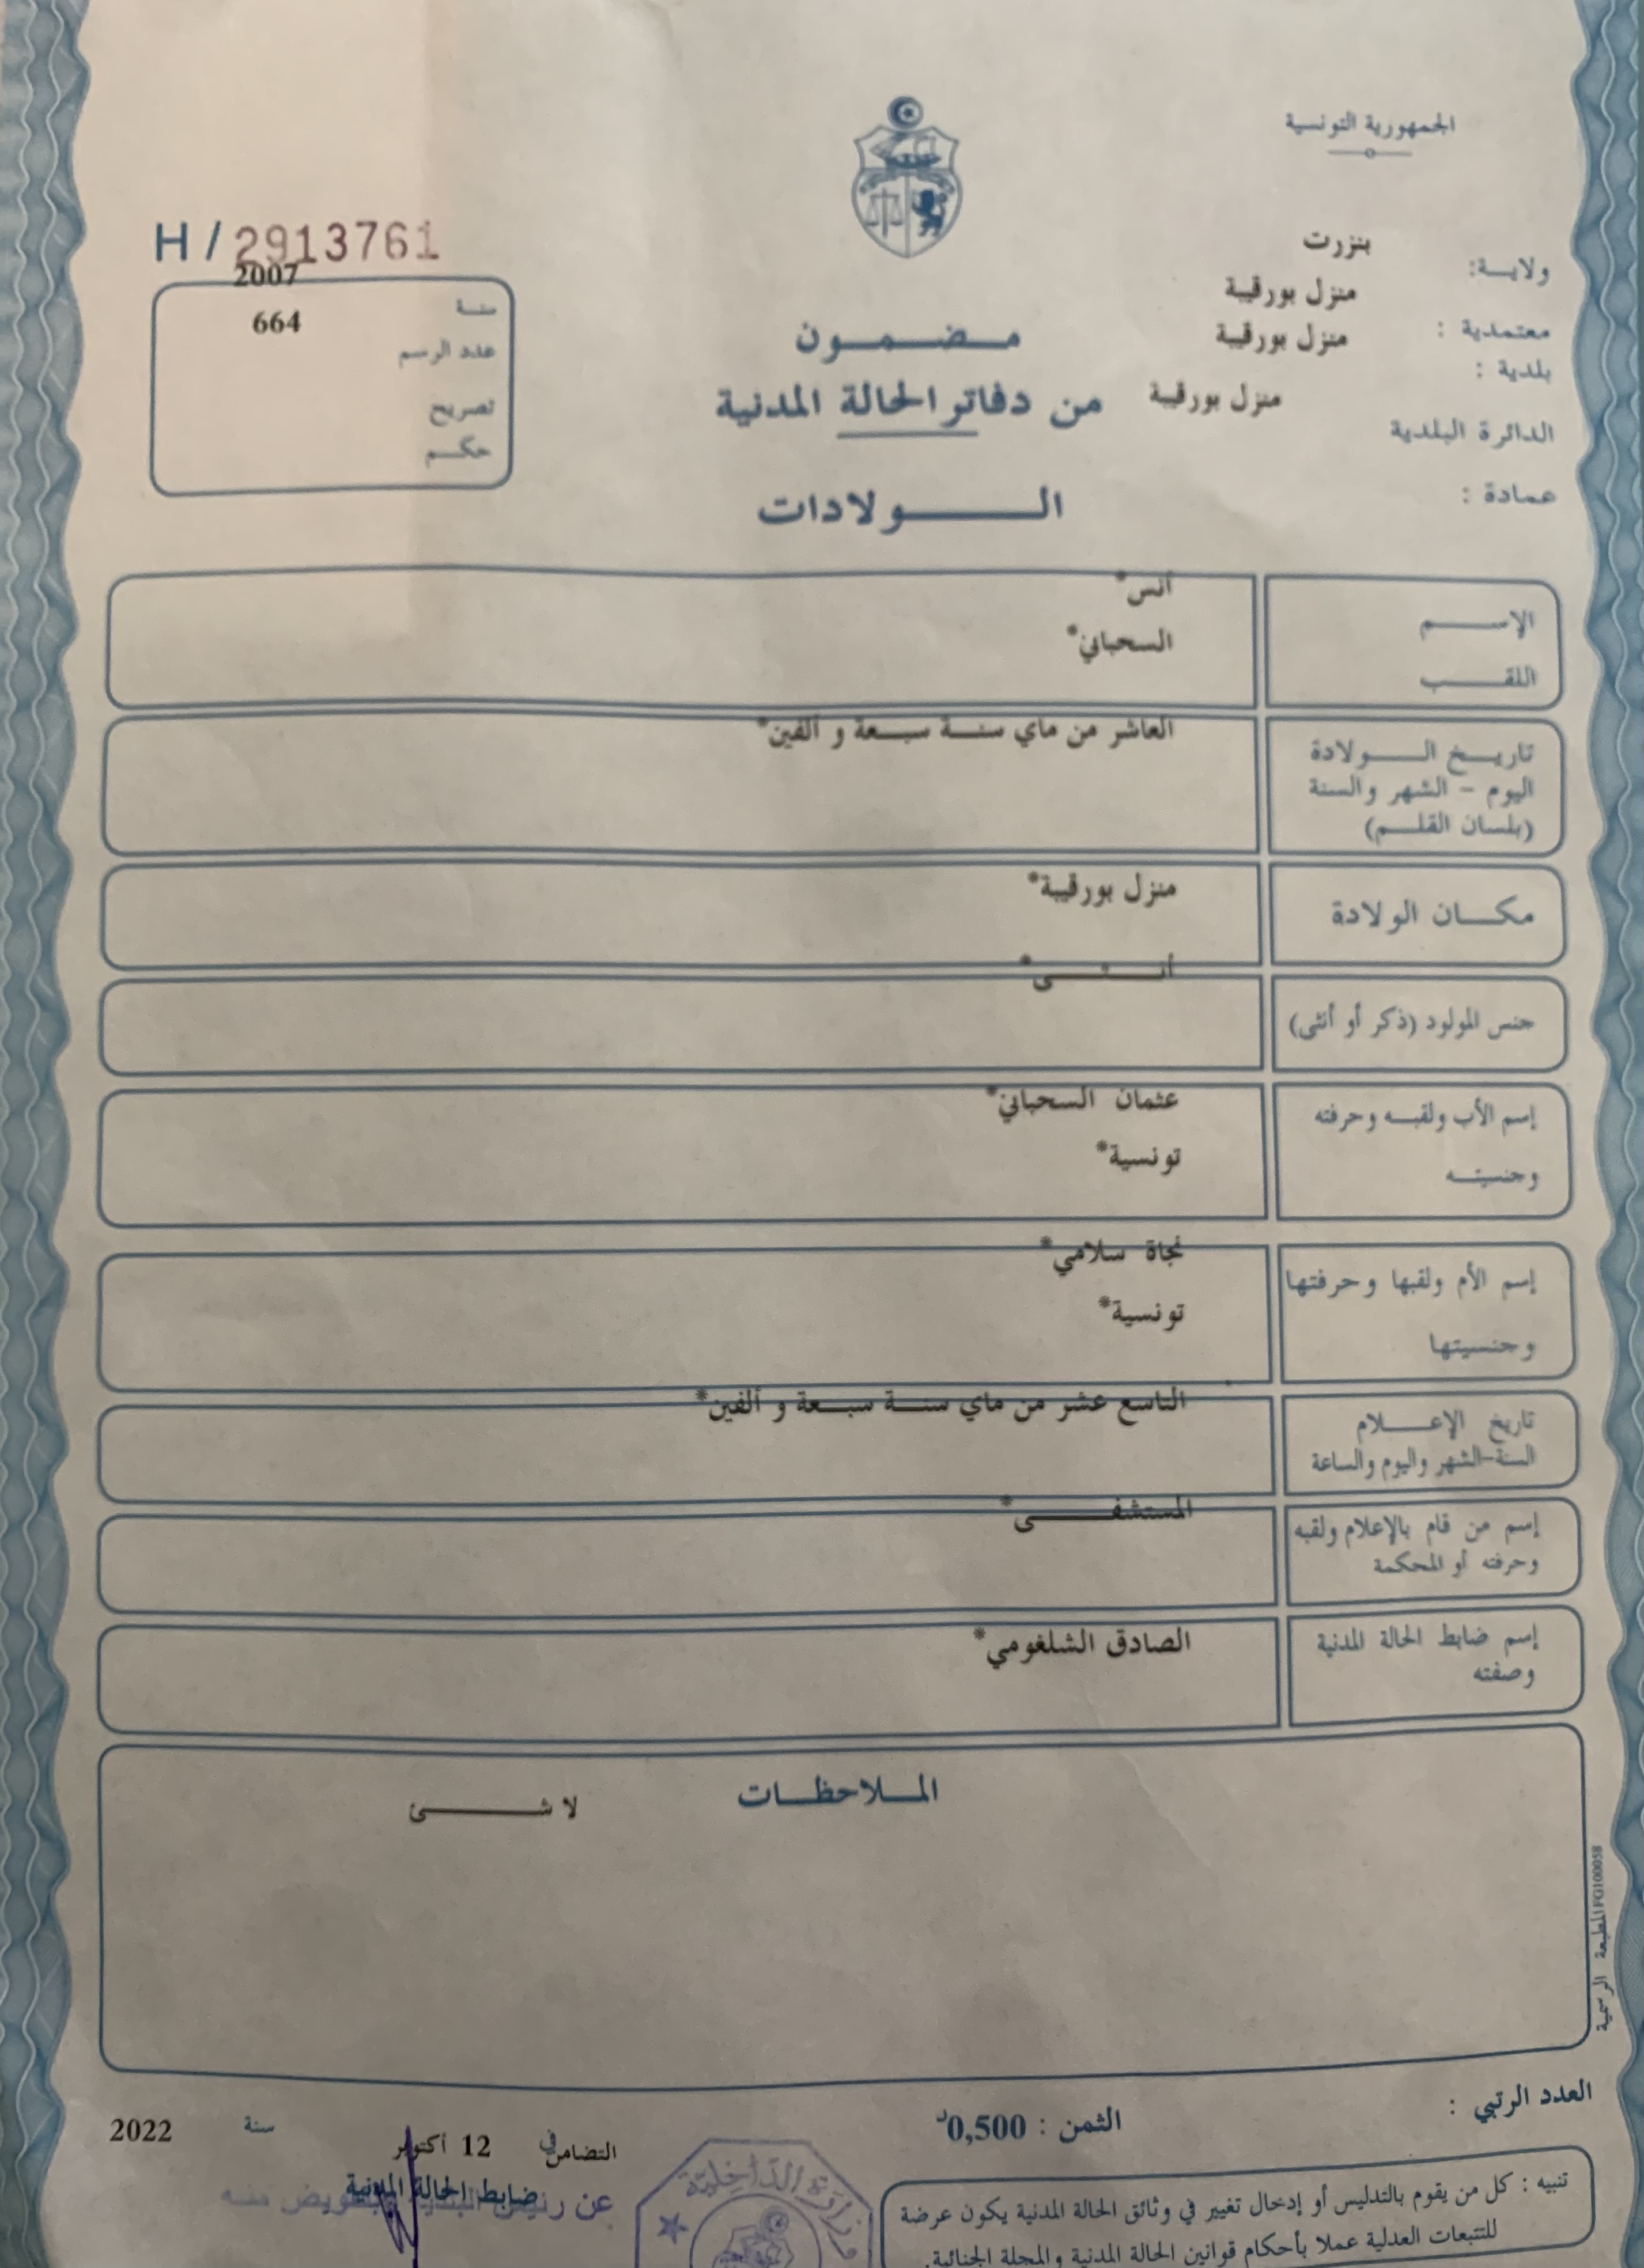 الجمهورية التونسية
ولايـــة: بنزرت
معتمدية : منزل بورقيبة
بلدية : منزل بورقيبة
الدائرة البلدية منزل بورقيبة
عمادة :
H / 2913761
2007
سنــة
664
عدد الرسم
تصريح
حكــم
مـــضـــمـــون
من دفاتر الحالة المدنية
الـــــــولادات
الإســـــم
أنس*
اللقـــــب
السحباني*
تاريـــخ الـــــولادة
اليوم - الشهر والسنة
(بلسان القلـــم)
العاشر من ماي سنـــة سبـــعة و ألفين*
مكـــان الولادة
منزل بورقيبة*
جنس المولود (ذكر أو أنثى)
أنـــــثـــــى*
إسم الأب ولقبــه وحرفته
وجنسيتــه
عثمان السحباني*
تونسية*
إسم الأم ولقبها وحرفتها
وجنسيتها
نجاة سلامي*
تونسية*
تاريخ الإعـــــلام
السنة-الشهر واليوم والساعة
التاسع عشر من ماي سنـــة سبـــعة و ألفين*
إسم من قام بالإعلام ولقبه
وحرفته أو المحكمة
المستشفـــــــى*
إسم ضابط الحالة المدنية
وصفته
الصادق الشلغومي*
الملاحظـــات
لا شـــــــئ
المطبعة الرسمية FG100058
العدد الرتبي :
الثمن : 0,500د
التضامن في 12 أكتوبر سنة 2022
ضابط الحالة المدنية
عن رئيس البلدية وبتفويض منه
وزارة الداخلية
تنبيه : كل من يقوم بالتدليس أو إدخال تغيير في وثائق الحالة المدنية يكون عرضة
للتتبعات العدلية عملا بأحكام قوانين الحالة المدنية والمجلة الجنائية.